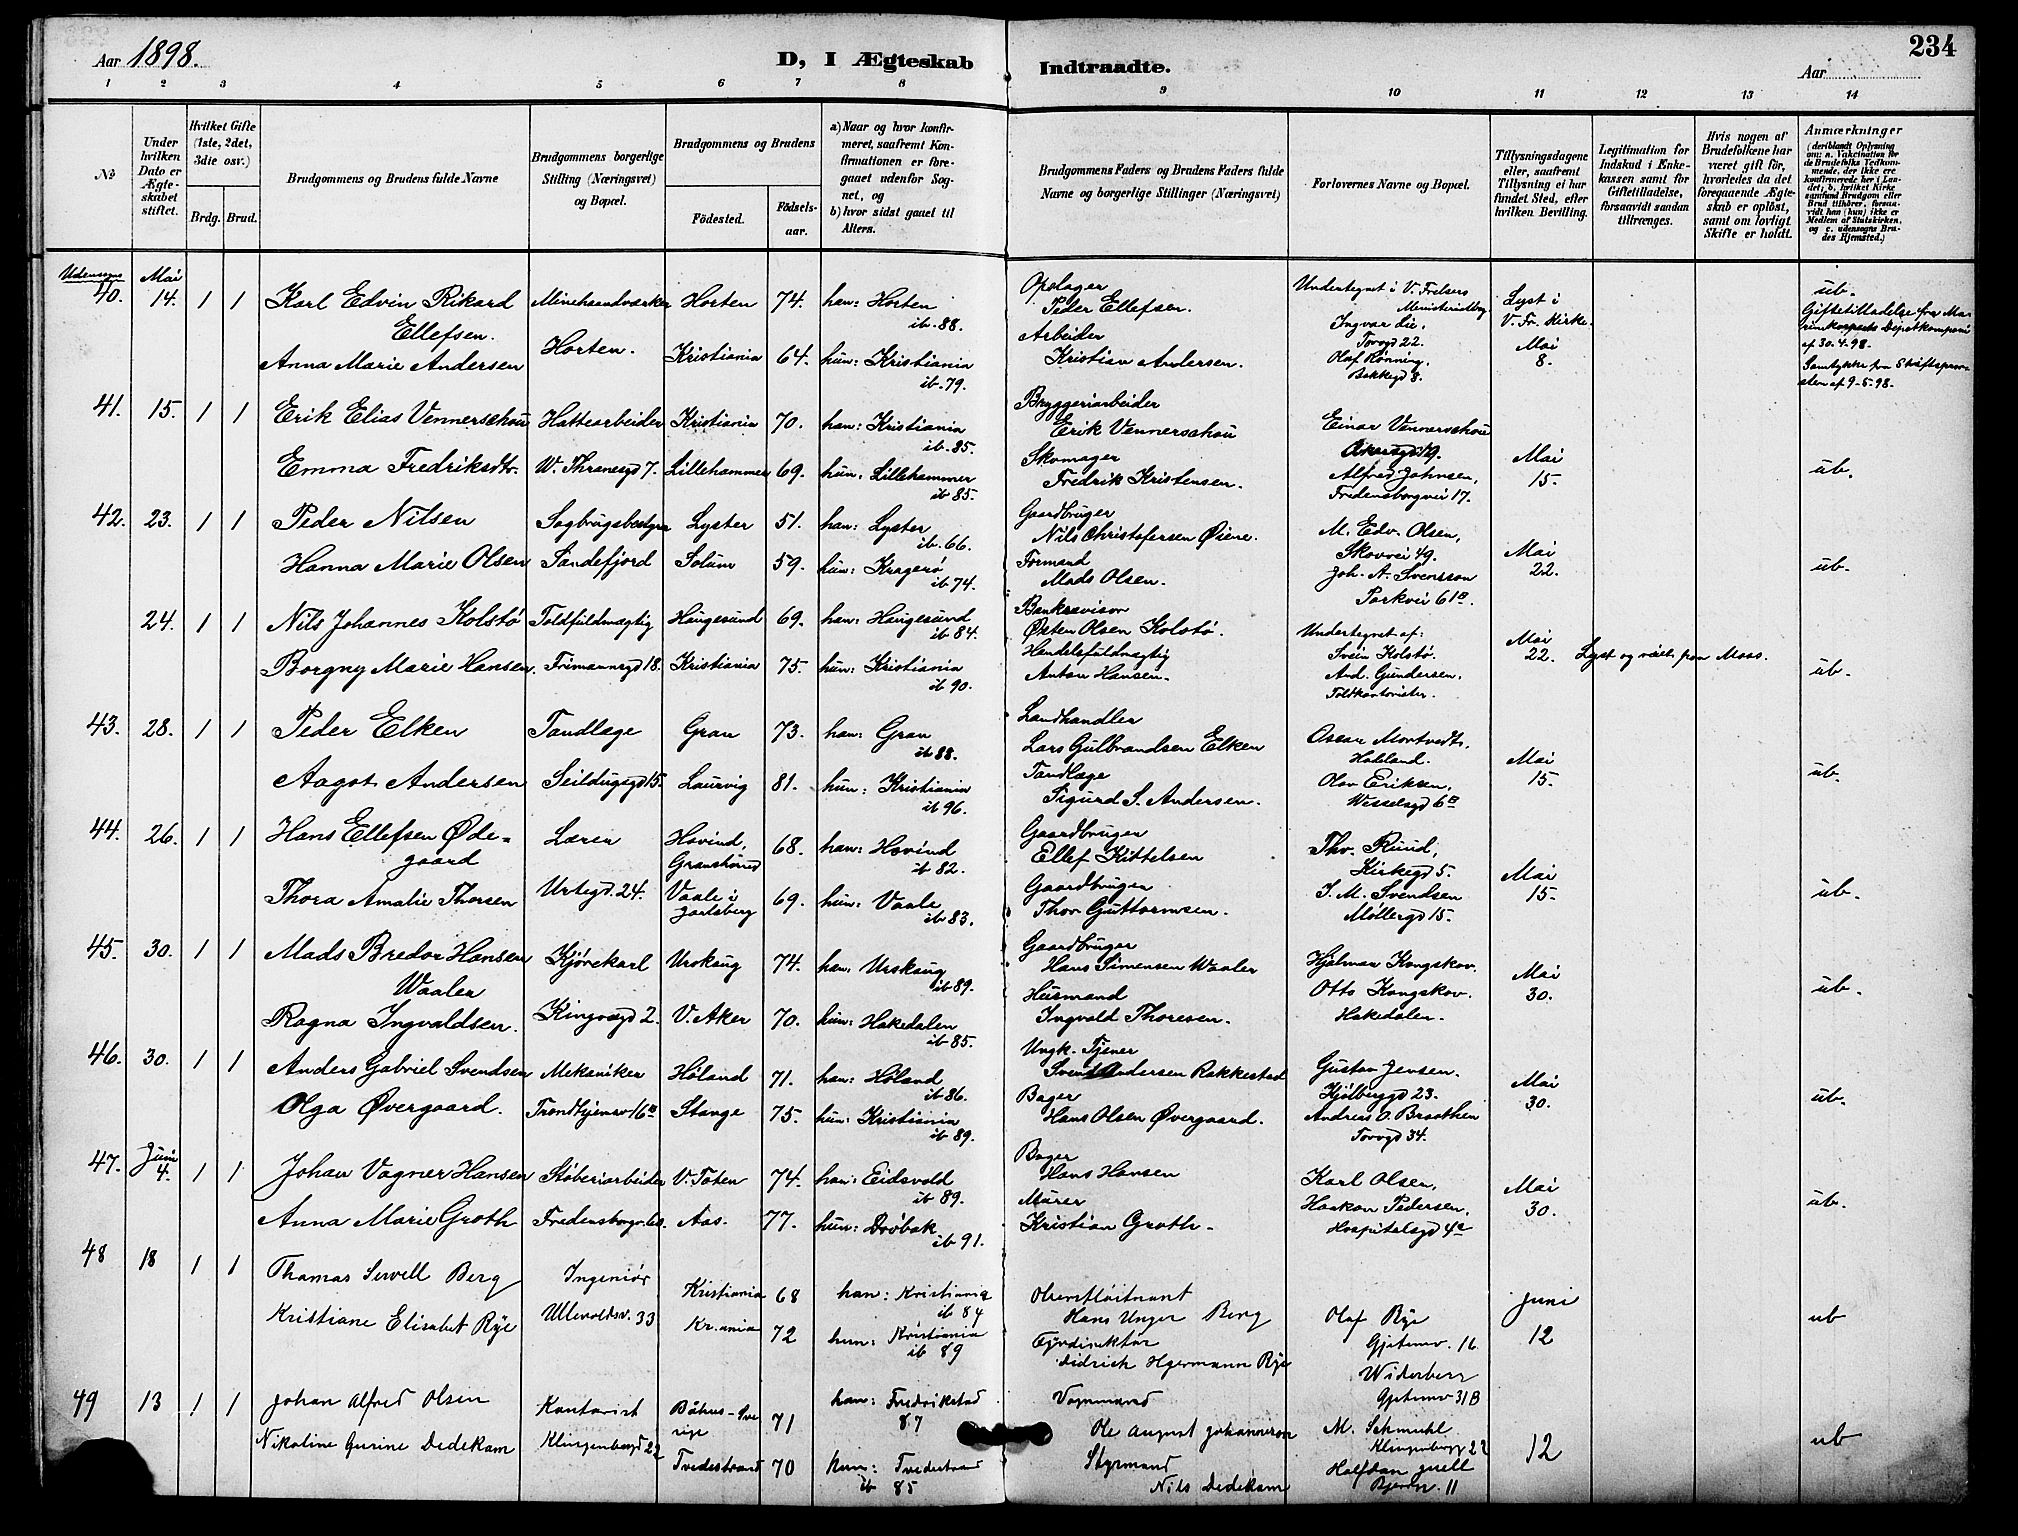 Aar 1898.
D, I Ægteskab
Indtraadte.
Aar
234
1 2 3 4 5 6 7 8 9 10 11 12 13 14
No
Under hvilken Dato er Ægteskabet stiftet.
Hvilket Gifte (1ste, 2det, 3die osv.)
Brdg. Brud.
Brudgommens og Brudens fulde Navne
Brudgommens borgerlige Stilling (Næringsvei) og Bopæl.
Brudgommens og Brudens
Födested.
Födselsaar.
a) Naar og hvor konfirmeret, saafremt Konfirmationen er foregaaet udenfor Sognet, og
b) hvor sidst gaaet til Alters.
Brudgommens Faders og Brudens Faders fulde Navne og borgerlige Stillinger (Næringsvei)
Forlovernes Navne og Bopæl.
Tillysningsdagene eller, saafremt Tillysning ei har fundet Sted, efter hvilken Bevilling.
Legitimation for Indskud i Enkekassen samt for Giftetilladelse, forsaavidt saadan tiltrænges.
Hvis nogen af Brudefolkene har været gift för, hvorledes da det foregaaende Ægteskab er oplöst, samt om lovligt Skifte er holdt.
Anmærkninger
(deriblandt Oplysning om: a. Vakcination for de Brudefolks Vedkommende, der ikke ere konfirmerede her i Landet; b. hvilket Kirkesamfund Brudgom eller Brud tilhörer, forsaavidt han (hun) ikke er Medlem af Statskirken, og c. udensogns Brudes Hjemsted.)
Udensogns Mai
40. 14. 1 1 Karl Edvin Rikard Ellefsen. Minehaandværker Horten 74. han: Horten ib. 88. Opslager Peder Ellefsen. Undertegnet i V. Frelsers Ministerialbog Ingvar Lie, Torvgd 22. Lyst i V. Fr. Kirke. ub.
Giftetilladelse fra Marinekorpsets Depotkompani af 30.4.98.
Anna Marie Andersen Horten. Kristiania 64. hun: Kristiania ib. 79. Arbeider Kristian Andersen. Olaf Rönning, Bakkegd 8. Mai 8. Samtykke fra Stiftsprovsten af 9-5-98.
41. 15. 1 1 Erik Elias Vennerschou Hattearbeider Kristiania 70. han: Kristiania ib. 85. Bryggeriarbeider Erik Vennerschou Einar Vennerschou Akersgd 19.
Emma Fredriksdtr. W. Thranesgd 7. Lillehammer 69. hun: Lillehammer ib 85. Skomager Fredrik Kristensen. Alfred Johnsen, Fredensborgvei 17. Mai 15. ub.
42. 23. 1 1 Peder Nilsen Sagbrugsbestyrer Lyster 51. han: Lyster ib. 66. Gaardbruger Nils Christofersen Øiene. M. Edv. Olsen, Skovvei 49.
Hanna Marie Olsen Sandefjord Solum 59. hun: Kragerö ib 74. Formand Mads Olsen. Joh. A. Svensson Parkvei 61B. Mai 22. ub.
24. 1 1 Nils Johannes Kolstø Toldfuldmægtig Haugesund 69. han: Haugesund ib 84. Bankrevisor Østen Olsen Kolstø. Undertegnet af: Svein Kolstø.
Borgny Marie Hansen. Frimannsgd 18. Kristiania 75. hun: Kristiania ib 90. Handelsfuldmægtig Anton Hansen. And. Gundersen, Toldkontorister. Mai 22. Lyst og viet fra Moss. ub.
43. 28. 1 1 Peder Elken Tandlæge Gran 73. han: Gran ib 88. Landhandler Lars Gulbrandsen Elken Oscar Mortvedt, Hadeland.
Aagot Andersen Seildugsgd 15. Laurvig 81. hun: Kristiania ib 96. Tandlæge Sigurd S. Andersen. Olav Eriksen, Wesselsgd 6B Mai 15. ub.
44. 26. 1 1 Hans Ellefsen Ødegaard Lærer Hovind, Gransherred 68. han: Hovind ib 82. Gaardbruger Ellef Kittelsen Thv. Ruud, Kirkegd 5.
Thora Amalie Thorsen Urtegd. 24. Vaale i Jarlsberg 69. hun: Vaale ib 83. Gaardbruger Thor Guttormsen. I. M. Svendsen Møllergd 15. Mai 15. ub.
45. 30. 1 1 Mads Bredor Hansen Waaler Kjørekarl Urskaug 74. han: Urskaug ib 89. Gaardbruger Hans Simensen Waaler Hjalmar Kongskov.
Ragna Ingvaldsen. Kingosgd 2. V. Aker 70. hun: Hakedalen ib 85. Husmand Ingvald Thoresen. Otto Kongskov. Hakedalen. Mai 30. ub.
46. 30. 1 1 Anders Gabriel Svendsen Mekaniker Høland 71. han: Høland ib 86. Ungk. Tjener Svend Andersen Rakkestad Gustav Jensen. Kjølberggd 23.
Olga Øvergaard. Trondhjemsv 16B Stange 75. hun: Kristiania ib 89. Bager Hans Olsen Øvergaard. Andreas O. Braathen Torvgd 34. Mai 30. ub.
47. Juni 4. 1 1 Johan Vagner Hansen Støberiarbeider V. Toten 74. han: Eidsvold ib 89. Bager Hans Hansen Karl Olsen,
Anna Marie Groth Fredensborgv. Aas. 77. hun: Drøbak ib 91. Murer Kristian Groth. Haakon Pedersen, Hospitalsgd 4a Mai 30. ub.
48 18 1 1 Thomas Servell Berg Ingeniør Kristiania 68 han: Kristiania ib 84 Oberstløitnant Hans Unger Berg Olaf Rye Gjetemv. 16
Kristiane Elisabet Rye Ullevoldsv. 33 Kr.ania 72 hun: Kristiania ib 89 Fyrdirektør Didrich Hjermann Rye Widerberg Gjetemv 31B Juni 12 ub
49 13 1 1 Johan Alfred Olsen Kontorist Båhus-Sverige 71 han: Fredrikstad 87 Vognmand Ole August Johannesson M. Schmuhl Klingenbergg 22
Nikoline Gurine Dedekam Klingenberggd 22 Tvedestrand 70 hun: Tvedestrand ib 85 Styrmand Nils Dedekam Halfdan 11 12 ub